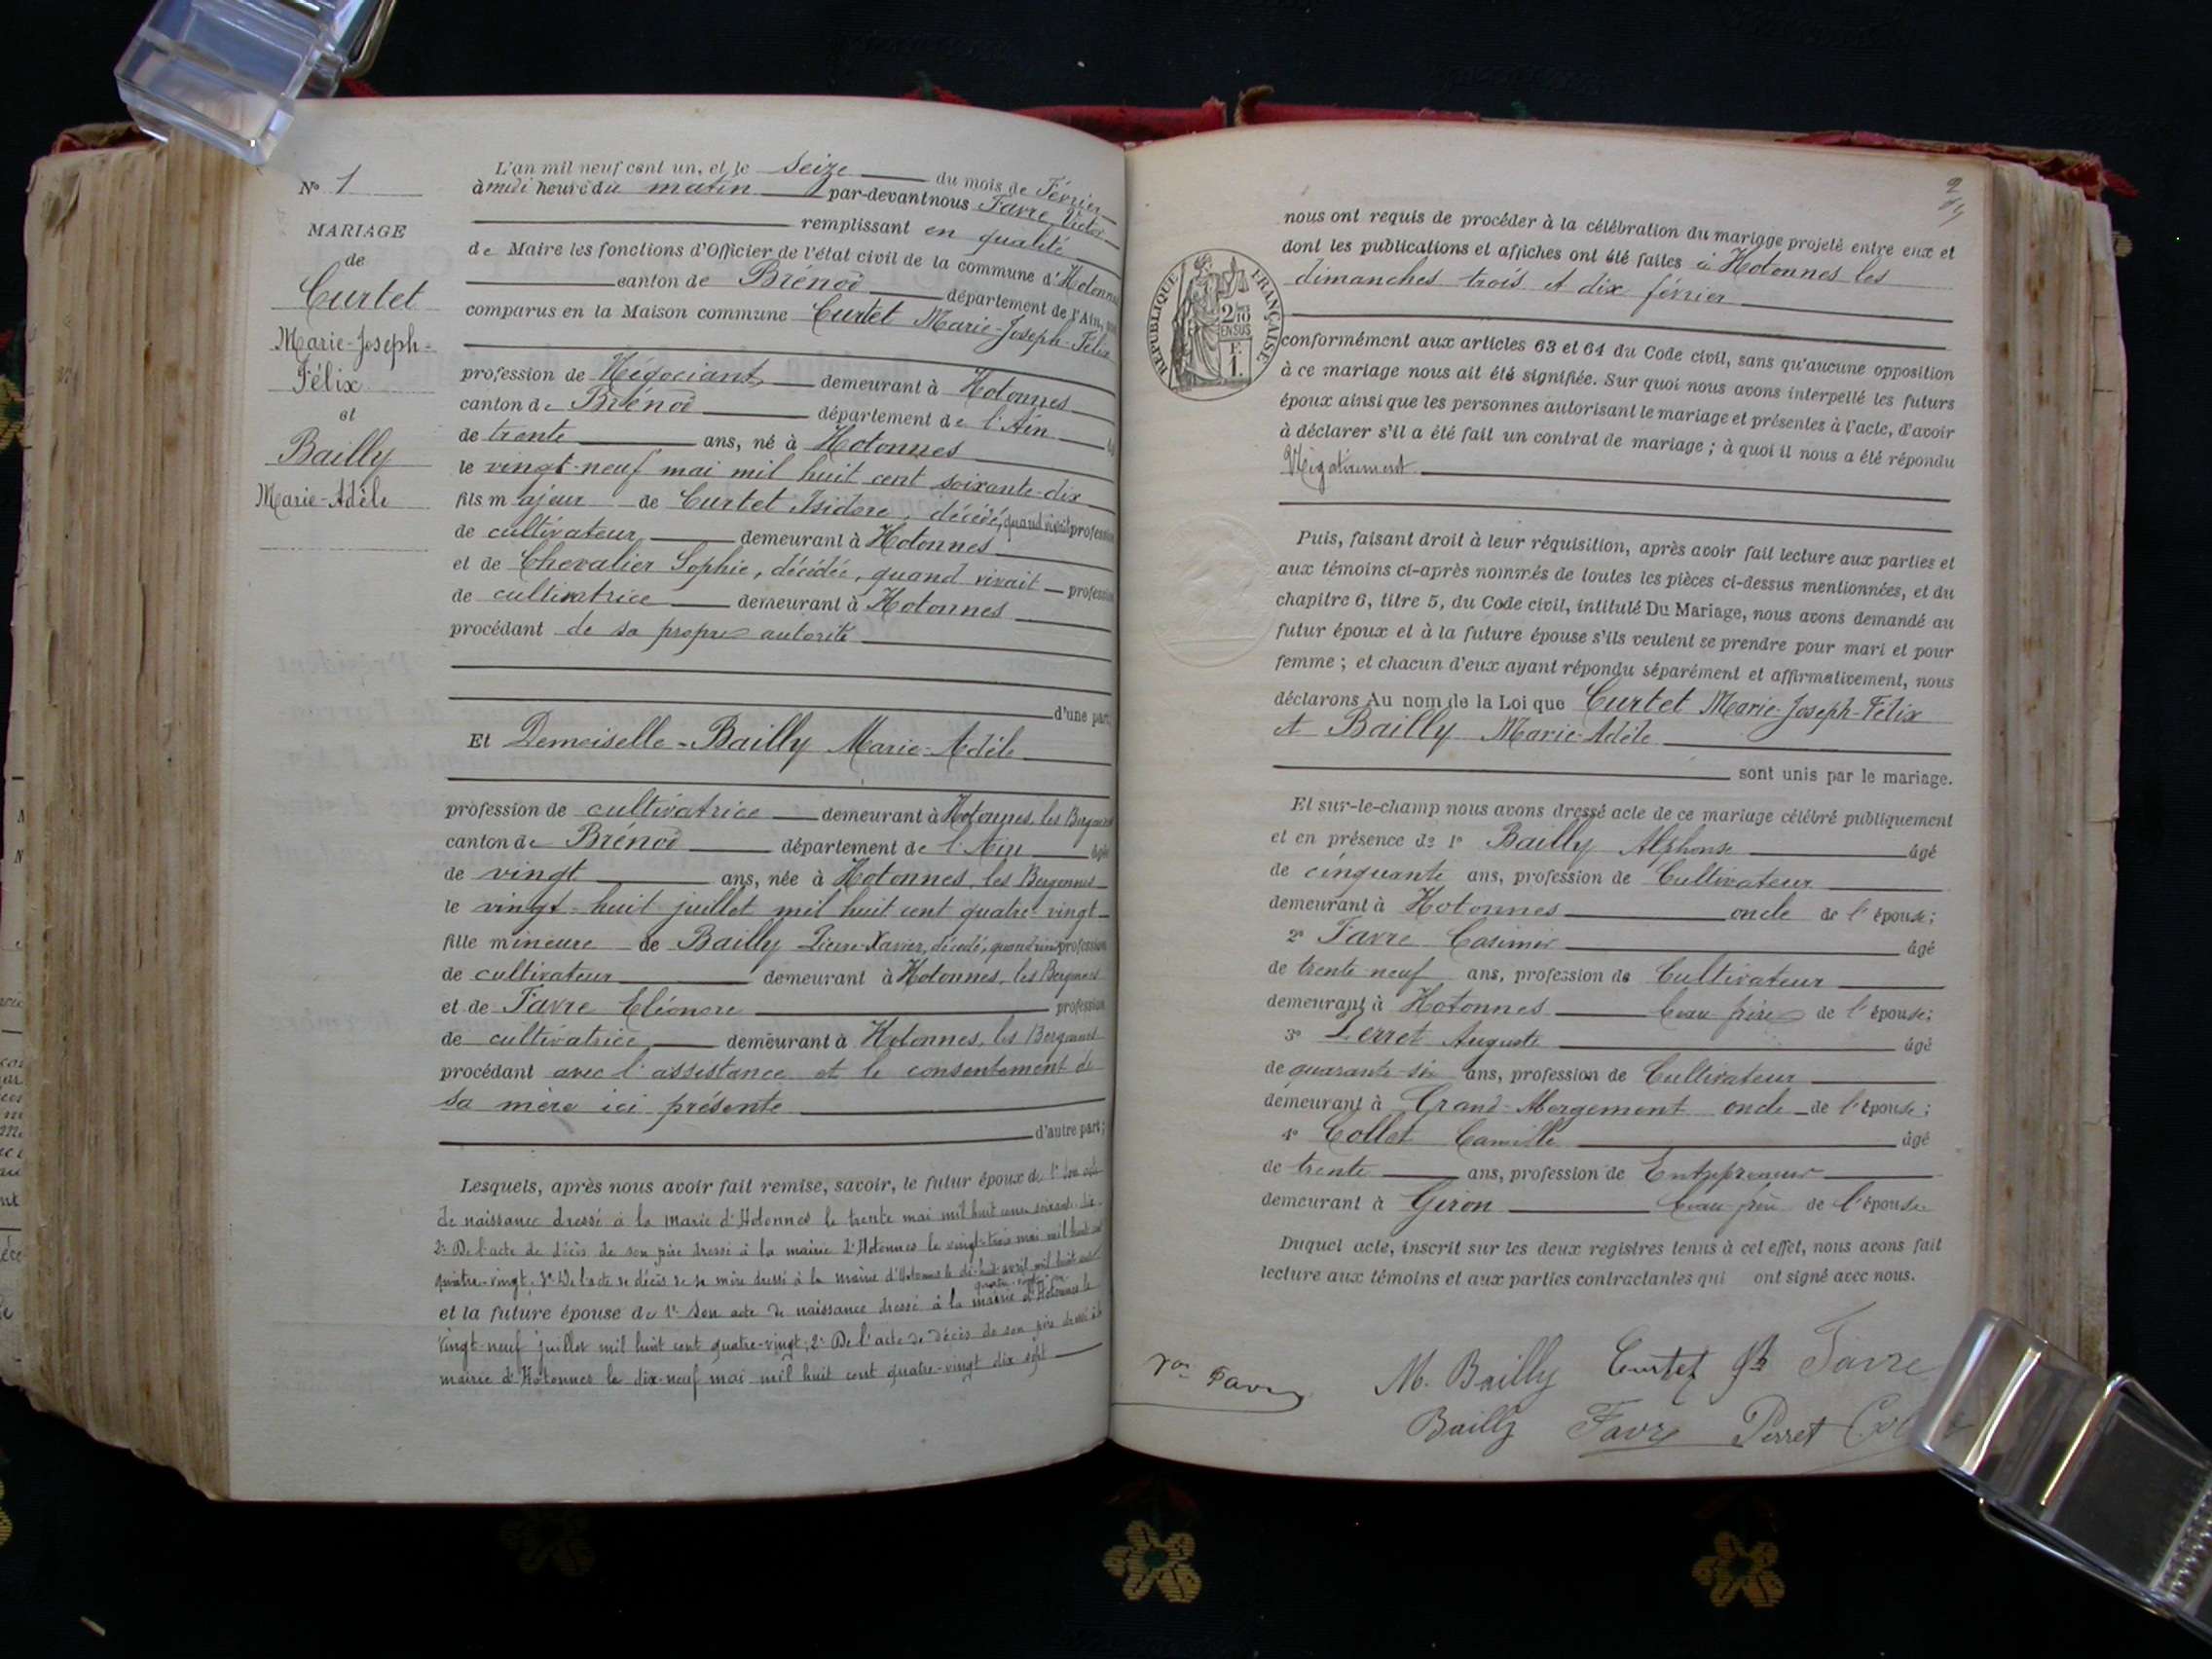 N° 1
MARIAGE
de
Curtet
Marie-Joseph-
Félix
et
Bailly
Marie-Adèle
L'an mil neuf cent un, et le seize du mois de Février
à midi heure du matin par-devant nous Favre Victor
remplissant en qualité
de Maire les fonctions d'Officier de l'état civil de la commune d'Hotonnes
canton de Brénod département de l'Ain,
comparus en la Maison commune Curtet Marie-Joseph-Félix
profession de Négociant demeurant à Hotonnes
canton de Brénod département de l'Ain
de trente ans, né à Hotonnes
le vingt-neuf mai mil huit cent soixante-dix
fils majeur de Curtet Isidore, décédé, quand vivait profession
de cultivateur demeurant à Hotonnes
et de Chevalier Sophie, décédée, quand vivait profession
de cultivatrice demeurant à Hotonnes
procédant de sa propre autorité
d'une part
Et Demoiselle Bailly Marie-Adèle
profession de cultivatrice demeurant à Hotonnes, les Bergonnes
canton de Brénod département de l'Ain âgée
de vingt ans, née à Hotonnes, les Bergonnes
le vingt-huit juillet mil huit cent quatre-vingt
fille mineure de Bailly Pierre-Xavier, décédé, quand vivait profession
de cultivateur demeurant à Hotonnes, les Bergonnes
et de Favre Eléonore profession
de cultivatrice demeurant à Hotonnes, les Bergonnes
procédant avec l'assistance et le consentement de
sa mère ici présente
d'autre part;
Lesquels, après nous avoir fait remise, savoir, le futur époux de 1° Son acte
de naissance dressé à la mairie d'Hotonnes le trente mai mil huit cent soixante-dix.
2° De l'acte de décès de son père dressé à la mairie d'Hotonnes le vingt-trois mai mil huit cent
quatre-vingt. 3° De l'acte de décès de sa mère dressé à la mairie d'Hotonnes le dix-huit avril mil huit cent
et la future épouse de 1° Son acte de naissance dressé à la mairie d'Hotonnes le
vingt-neuf juillet mil huit cent quatre-vingt; 2° De l'acte de décès de son père dressé à la
mairie d'Hotonnes le dix-neuf mai mil huit cent quatre-vingt dix sept
2
RÉPUBLIQUE FRANÇAISE
2/10
EN SUS
F.
1.
nous ont requis de procéder à la célébration du mariage projeté entre eux et
dont les publications et affiches ont été faites à Hotonnes les
dimanches trois et dix février
conformément aux articles 63 et 64 du Code civil, sans qu'aucune opposition
à ce mariage nous ait été signifiée. Sur quoi nous avons interpellé les futurs
époux ainsi que les personnes autorisant le mariage et présentes à l'acte, d'avoir
à déclarer s'il a été fait un contrat de mariage; à quoi il nous a été répondu
Négativement
Puis, faisant droit à leur réquisition, après avoir fait lecture aux parties et
aux témoins ci-après nommés de toutes les pièces ci-dessus mentionnées, et du
chapitre 6, titre 5, du Code civil, intitulé Du Mariage, nous avons demandé au
futur époux et à la future épouse s'ils veulent se prendre pour mari et pour
femme; et chacun d'eux ayant répondu séparément et affirmativement, nous
déclarons Au nom de la Loi que Curtet Marie-Joseph-Félix
et Bailly Marie-Adèle
sont unis par le mariage.
Et sur-le-champ nous avons dressé acte de ce mariage célébré publiquement
et en présence de 1° Bailly Alphonse âgé
de cinquante ans, profession de Cultivateur
demeurant à Hotonnes oncle de l'épouse;
2° Favre Casimir âgé
de trente neuf ans, profession de Cultivateur
demeurant à Hotonnes beau frère de l'épouse;
3° Perret Auguste âgé
de quarante six ans, profession de Cultivateur
demeurant à Grand-Abergement oncle de l'épouse;
4° Collet Camille âgé
de trente ans, profession de Entrepreneur
demeurant à Giron beau frère de l'épouse
Duquel acte, inscrit sur les deux registres tenus à cet effet, nous avons fait
lecture aux témoins et aux parties contractantes qui ont signé avec nous.
M. Bailly Curtet Favre
Favre
Bailly Favre Perret